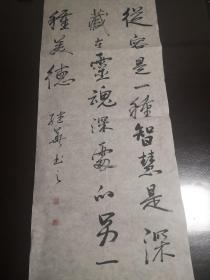 從容是一種智慧是深
藏在靈魂深處的另一
種美德
書之